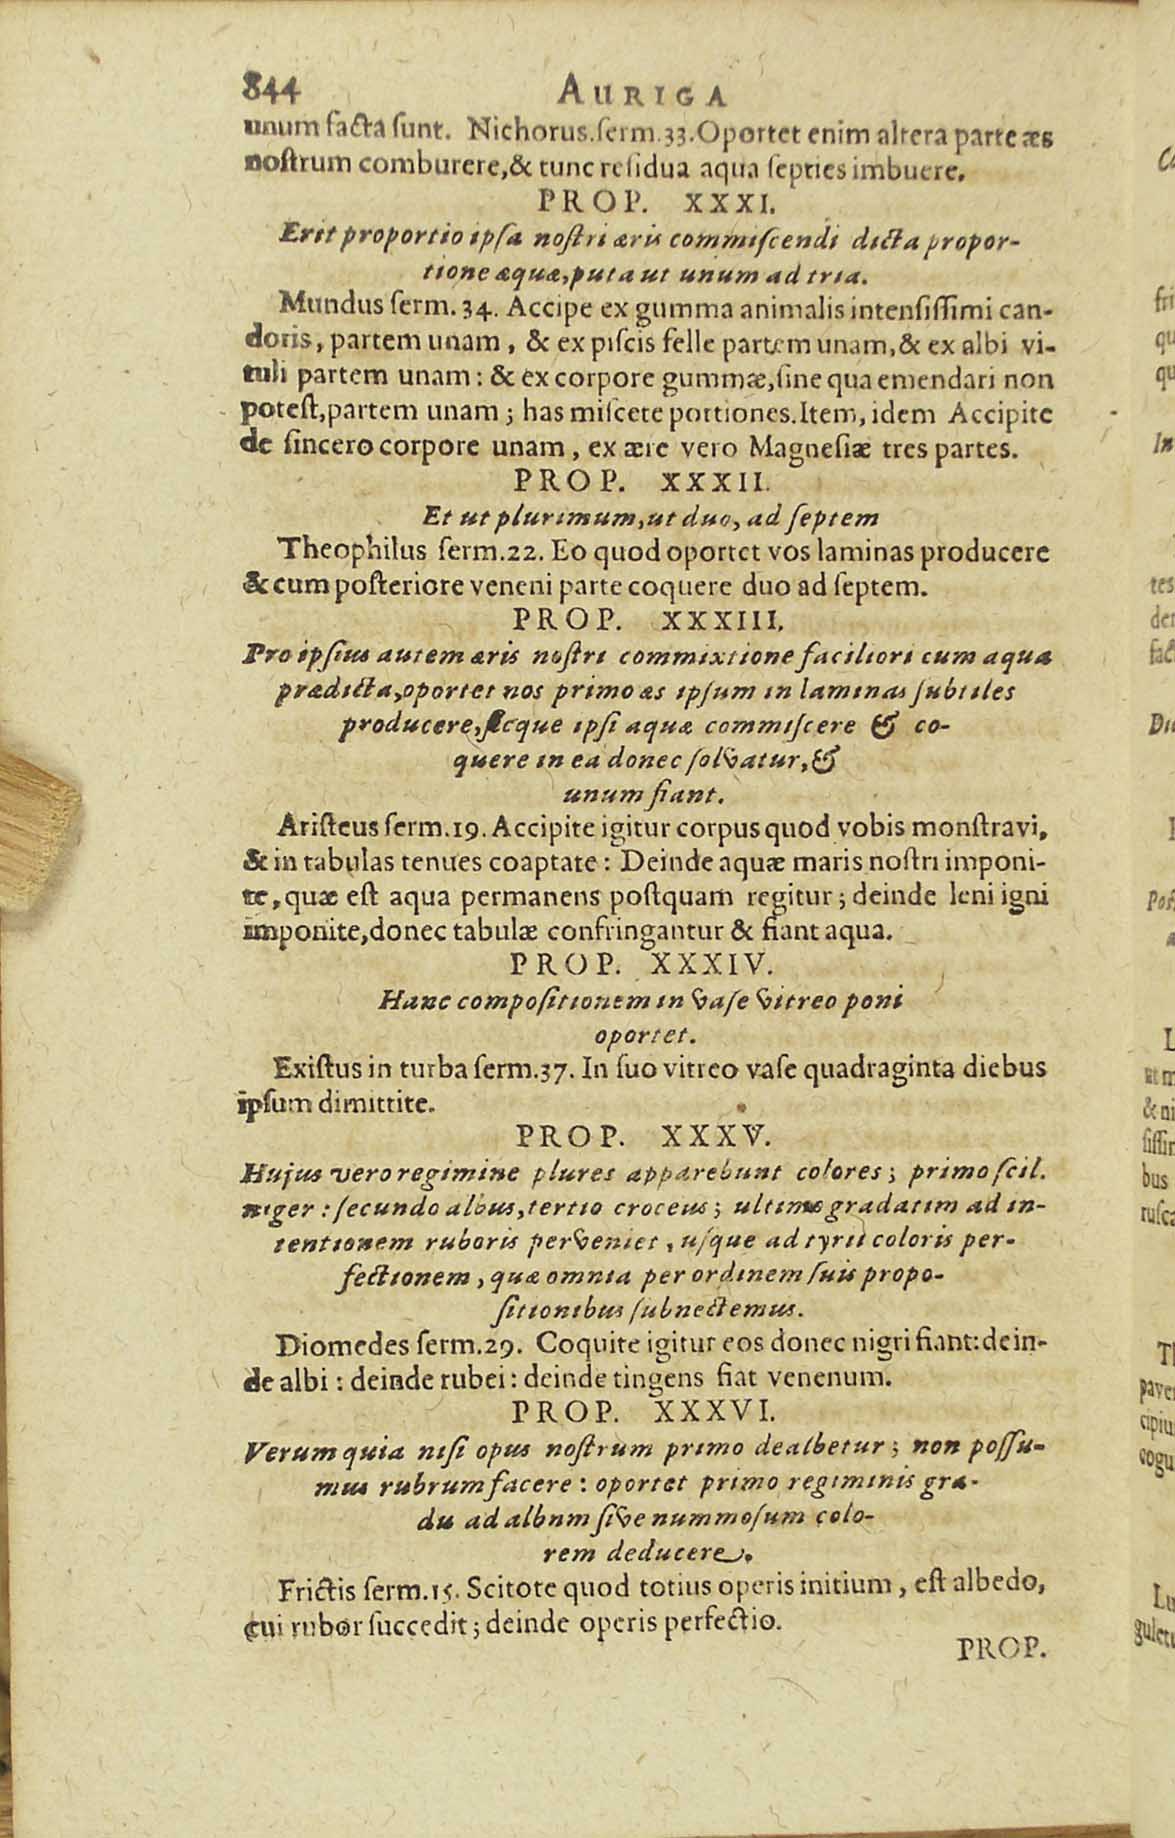 844 AURIGA
unum facta sunt. Nichorus.serm.33.Oportet enim altera parte æs
nostrum comburere,& tunc residua aqua septies imbuere.
PROP. XXXI.
Erit proportio ipsa nostri æris commiscendi dicta propor-
tione æquæ,puta ut unum ad tria.
Mundus serm.34. Accipe ex gumma animalis intensissimi can-
doris, partem unam, & ex piscis felle partem unam,& ex albi vi-
tuli partem unam: & ex corpore gummæ,sine qua emendari non
potest,partem unam; has miscete portiones.Item, idem Accipite
de sincero corpore unam, ex ære vero Magnesiæ tres partes.
PROP. XXXII.
Et ut plurimum,ut duo, ad septem
Theophilus serm.22. Eo quod oportet vos laminas producere
& cum posteriore veneni parte coquere duo ad septem.
PROP. XXXIII.
Pro ipsius autem æris nostri commixtione faciliori cum aqua
prædicta,oportet nos primo æs ipsum in laminas subtiles
producere,sicque ipsi aquæ commiscere & co-
quere in ea donec solvatur,&
unum fiant.
Aristeus serm.19. Accipite igitur corpus quod vobis monstravi,
& in tabulas tenues coaptate: Deinde aquæ maris nostri imponi-
te, quæ est aqua permanens postquam regitur; deinde leni igni
imponite,donec tabulæ confringantur & fiant aqua.
PROP. XXXIV.
Hanc compositionem in vase vitreo poni
oportet.
Existus in turba serm.37. In suo vitreo vase quadraginta diebus
ipsum dimittite.
PROP. XXXV.
Hujus vero regimine plures apparebunt colores; primo scil.
niger: secundo albus,tertio croceus; ultimo gradatim ad in-
tentionem ruboris perveniet, usque ad tyrii coloris per-
fectionem, quæ omnia per ordinem suis propo-
sitionibus subnectemus.
Diomedes serm.29. Coquite igitur eos donec nigri fiant: dein-
de albi: deinde rubei: deinde tingens fiat venenum.
PROP. XXXVI.
Verum quia nisi opus nostrum primo dealbetur; non possu-
mus rubrum facere: oportet primo regiminis gra-
du ad albnm sive nummosum colo-
rem deducere.
Frictis serm.15. Scitote quod totius operis initium, est albedo,
cui rubor succedit; deinde operis perfectio.
PROP.